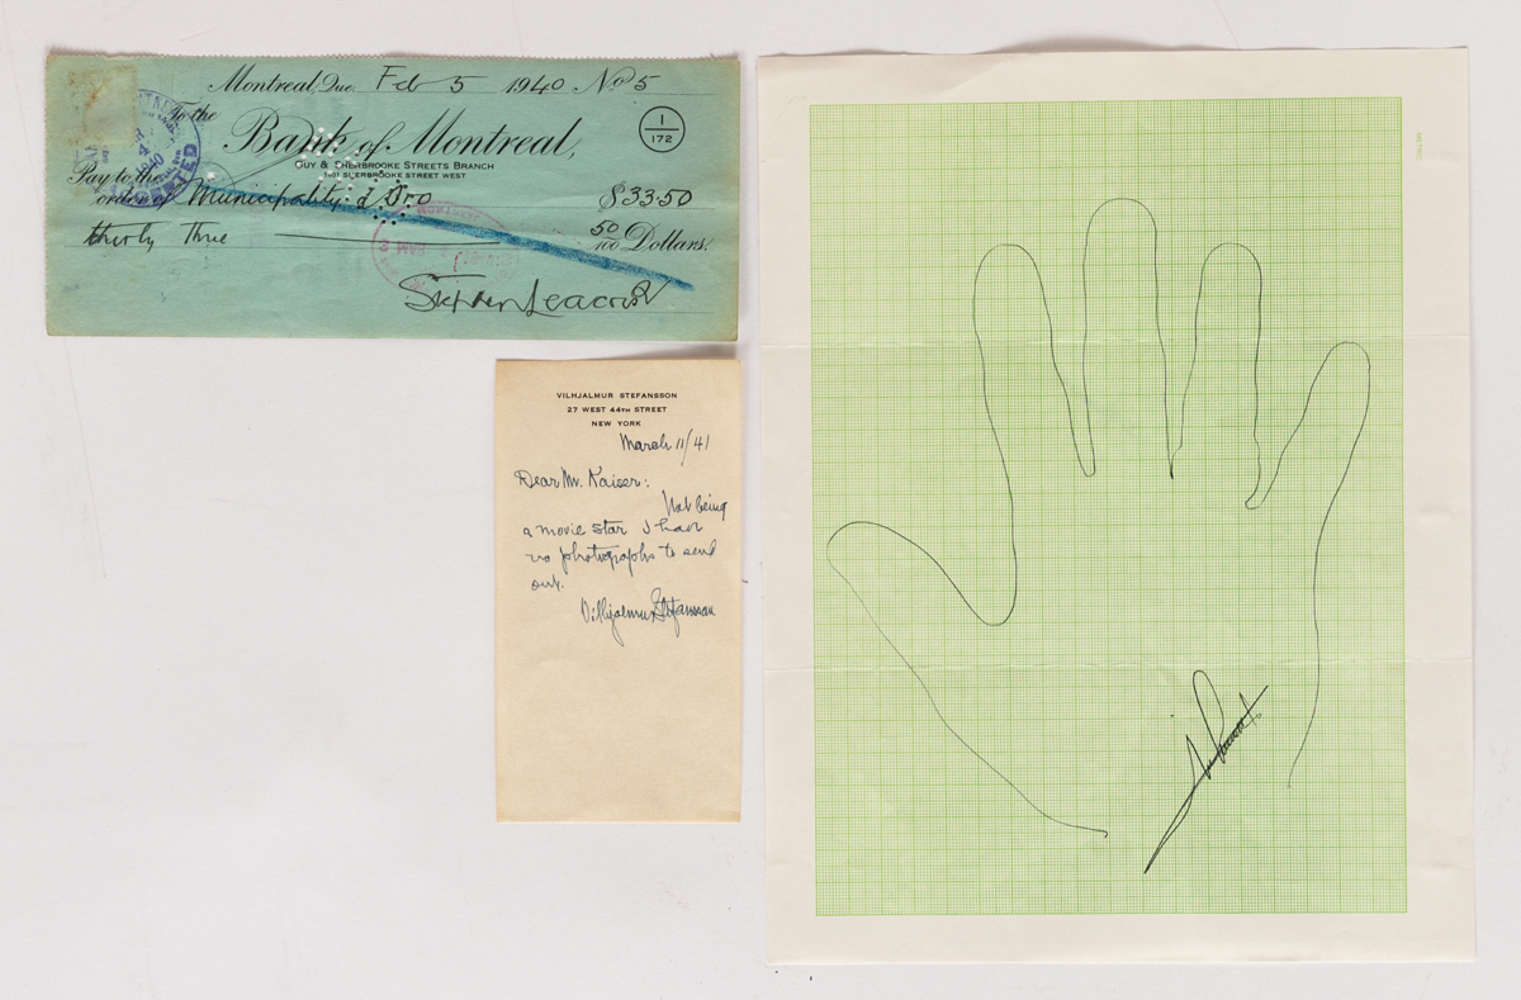 Montreal, Que. Feb 5 1940 No 5
To the
Bank of Montreal,
1
172
GUY & SHERBROOKE STREETS BRANCH
SHERBROOKE STREET WEST
Pay to the
order of Municipality: d Oro $33.50
thirty Three 50/100 Dollars.
Stephen Leacock
VILHJALMUR STEFANSSON
27 WEST 44TH STREET
NEW YORK
March 11/41
Dear Mr. Kaiser:
Not being
a movie star I have
no photographs to send
out.
Vilhjalmur Stefansson
METRIC